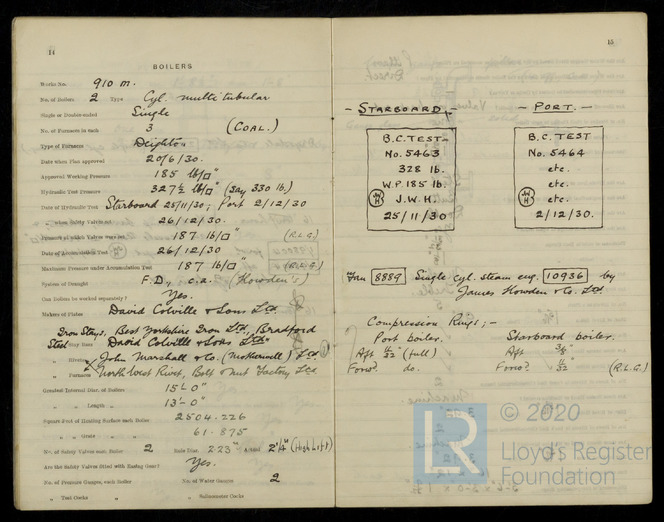 14
BOILERS
Works No. 910 m.
No. of Boilers 2 Type Cyl. multitubular
Single or Double-ended Single
No. of Furnaces in each 3 (COAL.)
Type of Furnaces Deighton
Date when Plan approved 20/6/30.
Approved Working Pressure 185 lb/□"
Hydraulic Test Pressure 327½ lb/□" (say 330 lb.)
Date of Hydraulic Test Starboard 25/11/30; Port 2/12/30
" when Safety Valves set 26/12/30.
Pressure at which Valves were set 187 lb/□" (R.L.G.)
Date of Accumulation Test 26/12/30
Maximum Pressure under Accumulation Test 187 lb/□" (R.L.G.)
System of Draught F.D., c.a. (Howden's)
Can Boilers be worked separately? Yes.
Makers of Plates David Colville & Sons Ltd.
Iron Stays. Best Yorkshire Iron Ltd, Bradford
Steel Stay Bars David Colville & Sons Ltd
" Rivets John Marshall & Co. (Motherwell) Ltd
" Furnaces North West Rivet, Bolt & Nut Factory Ltd
Greatest Internal Diam. of Boilers 15'-0"
" " Length " 13'-0"
Square Feet of Heating Surface each Boiler 2504.226
" " Grate " " 61.875
No. of Safety Valves each Boiler 2 Rule Diam. 2.23" Actual 2¼" (High Lift)
Are the Safety Valves fitted with Easing Gear? Yes.
No. of Pressure Gauges, each Boiler No. of Water Gauges 2
" Test Cocks " " Salinometer Cocks
15
- STARBOARD -
B.C. TEST
No. 5463
328 lb.
W.P. 185 lb.
J.W.H.
25/11/30
- PORT. -
B.C. TEST
No. 5464
etc.
etc.
etc.
2/12/30.
Fan 8889 Single cyl. steam eng. 10936 by
James Howden & Co. Ltd.
Compression Rings;-
Port boiler.
Aft 11/32" (full)
Forwd. do.
Starboard boiler.
Aft 3/8"
Forwd. 11/32 (R.L.G.)
LR
© 2020
Lloyd's Register
Foundation